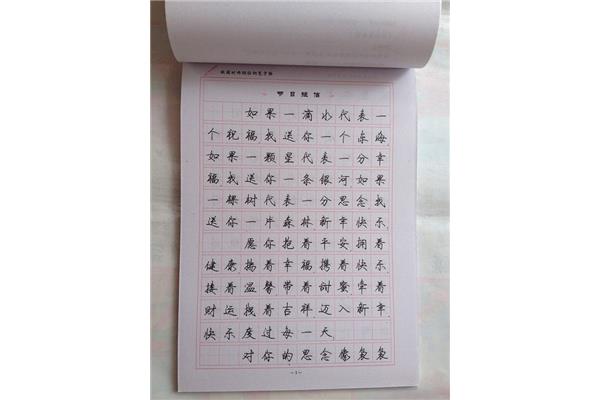 节日短信
如果一滴水代表一
个祝福我送你一个东海
如果一颗星代表一分幸
福我送你一条银河如果
一棵树代表一分思念我
送你一片森林新年快乐
愿你抱着平安拥着
健康揣着幸福携着快乐
搂着温馨带着甜蜜牵着
财运拽着吉祥迈入新年
快乐度过每一天
对你的思念像袅袅
~1~